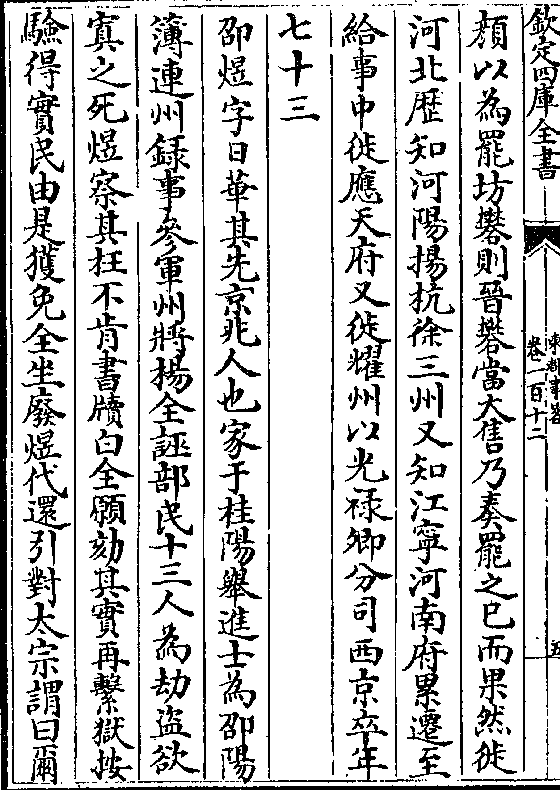 欽定四庫全書
東都事畧
卷一百十二
五
顔以為罷坊礬則晉礬當大售乃奏罷之已而果然徙
河北歴知河陽揚杭徐三州又知江寧河南府累遷至
給事中徙應天府又徙耀州以光禄卿分司西京卒年
七十三
邵煜字日華其先京兆人也家于桂陽舉進士為邵陽
簿連州録事參軍州將楊全誣部民十三人為劫盜欲
寘之死煜察其枉不肯書牘白全願劾其實再繫獄按
驗得實民由是獲免全坐廢煜代還引對太宗謂曰爾